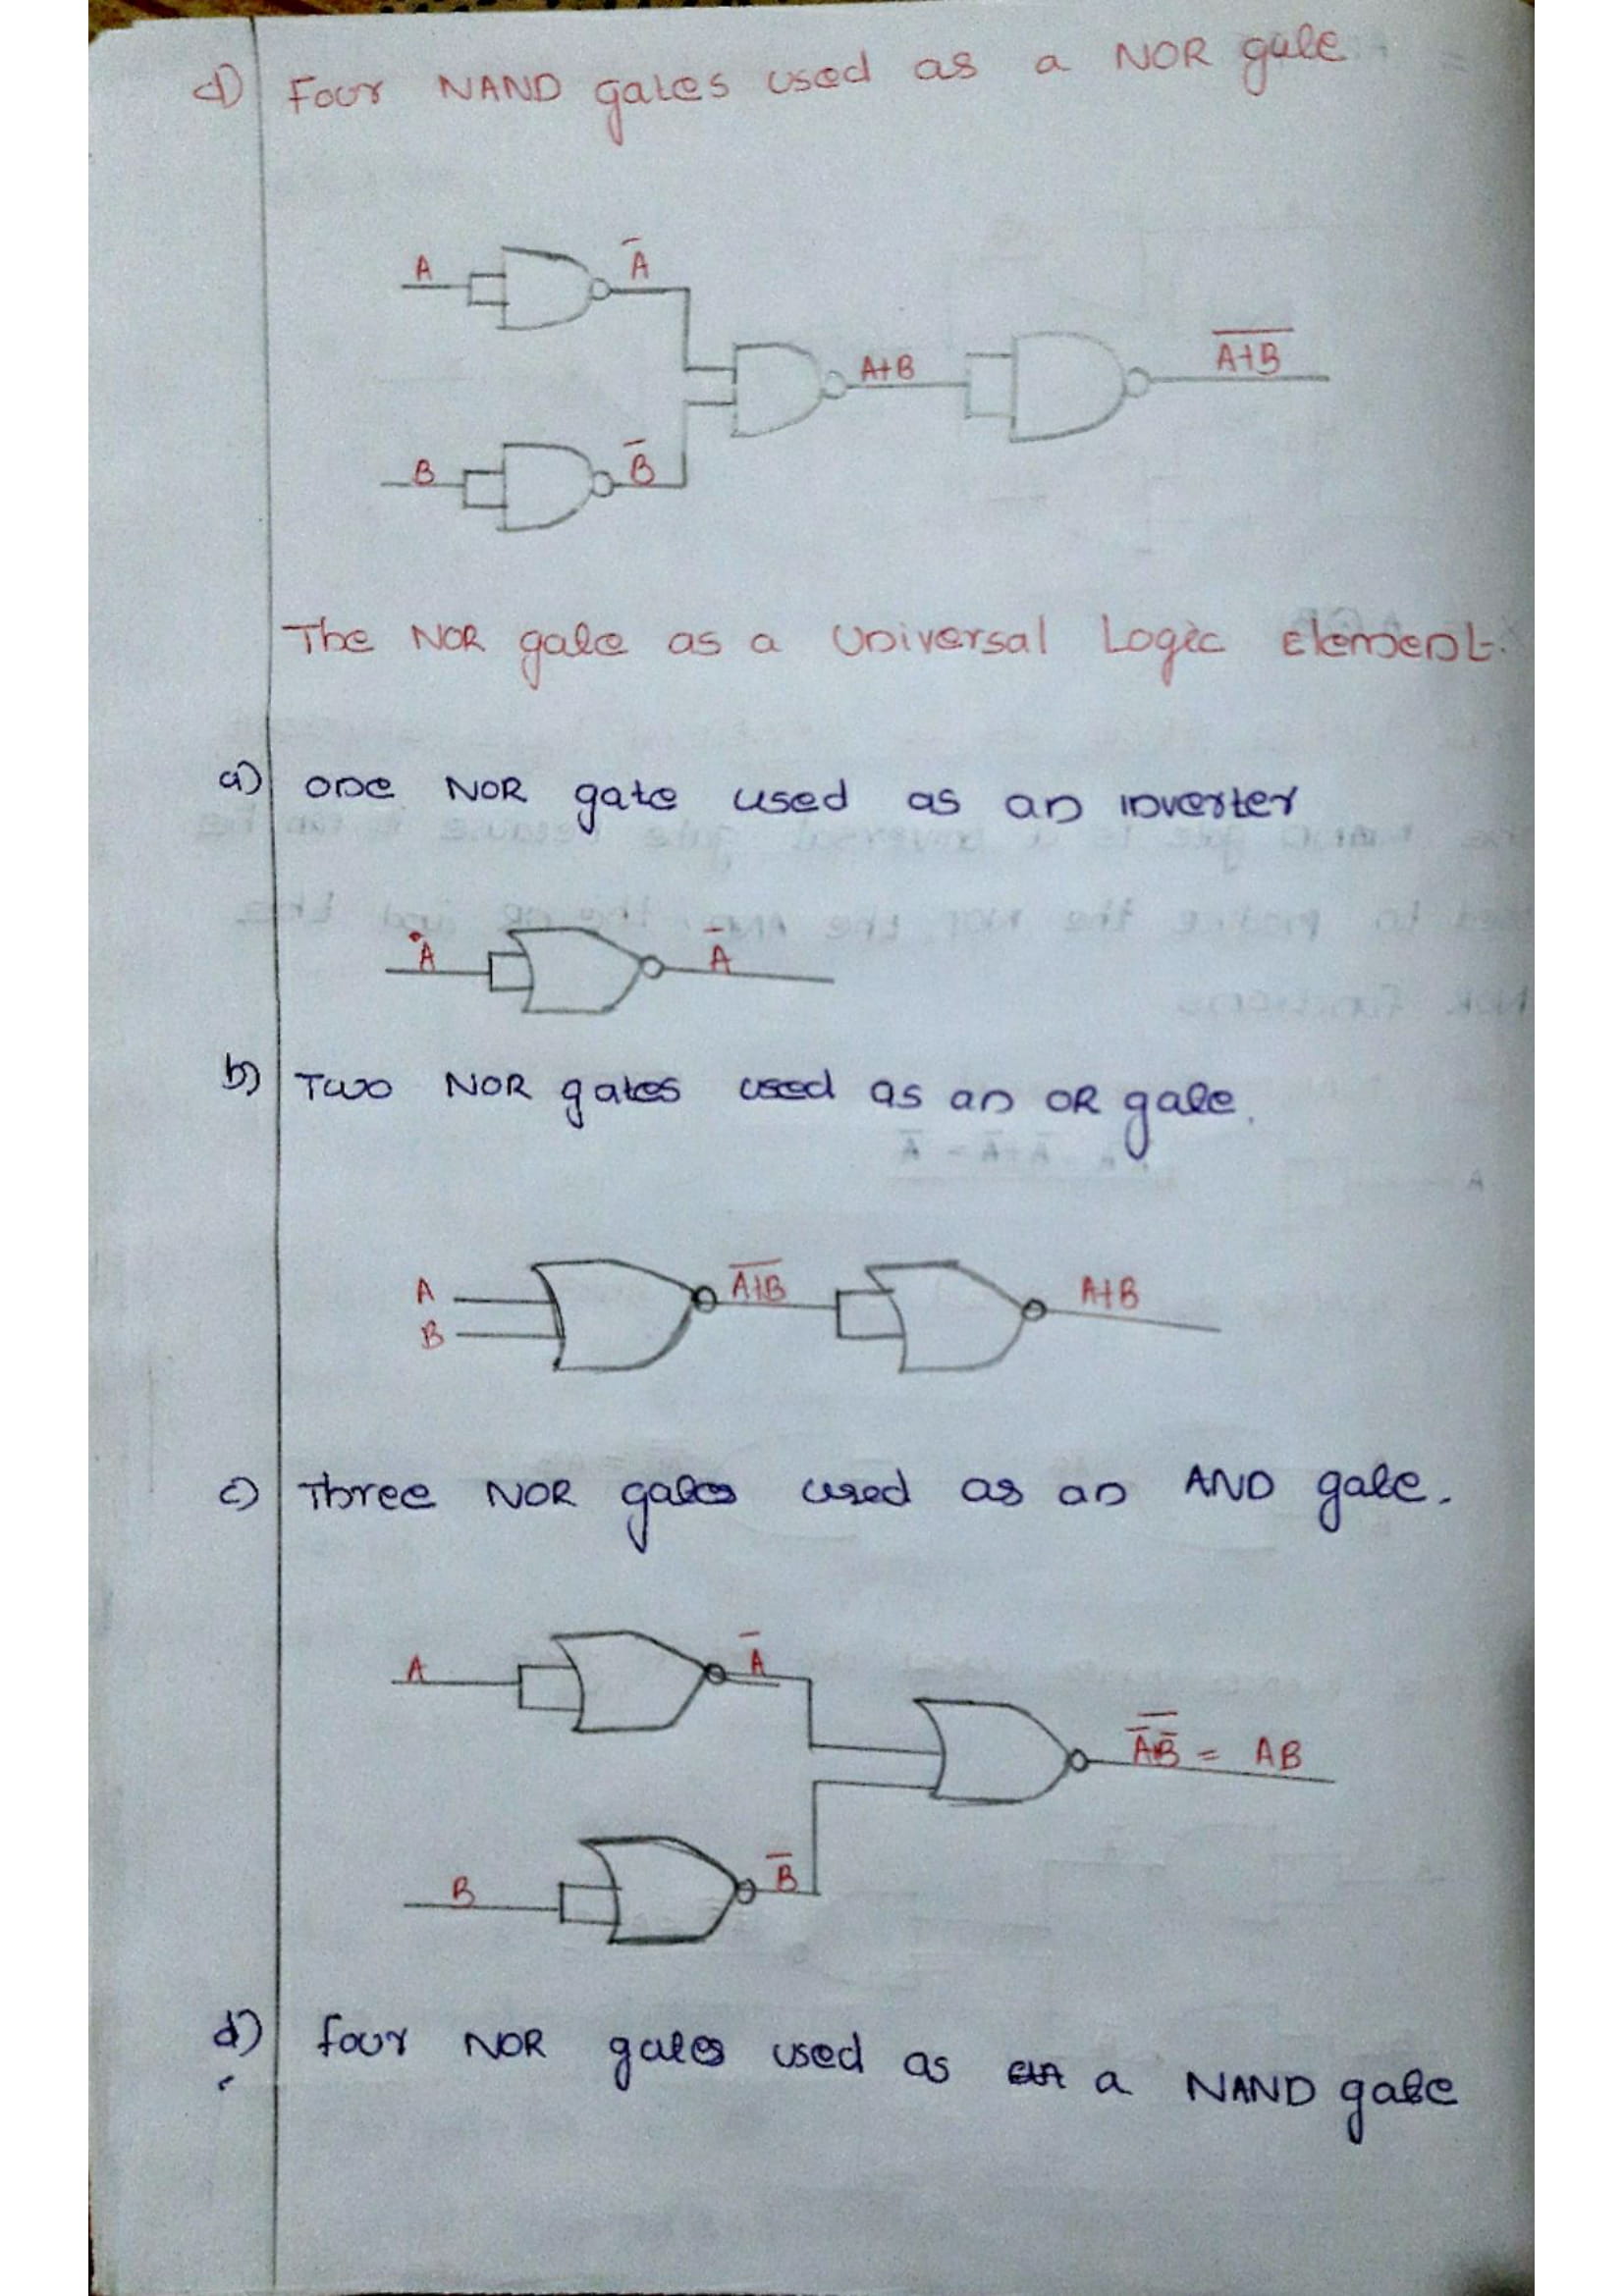 d) Four NAND gates used as a NOR gate
A
A̅
B
B̅
A+B
\overline{A+B}
The NOR gate as a Universal Logic Element.
a) one NOR gate used as an inverter
A
A̅
b) Two NOR gates used as an OR gate.
A
B
\overline{A+B}
A+B
c) Three NOR gates used as an AND gate.
A
A̅
B
B̅
\overline{A̅ B̅} = AB
d) four NOR gates used as a NAND gate